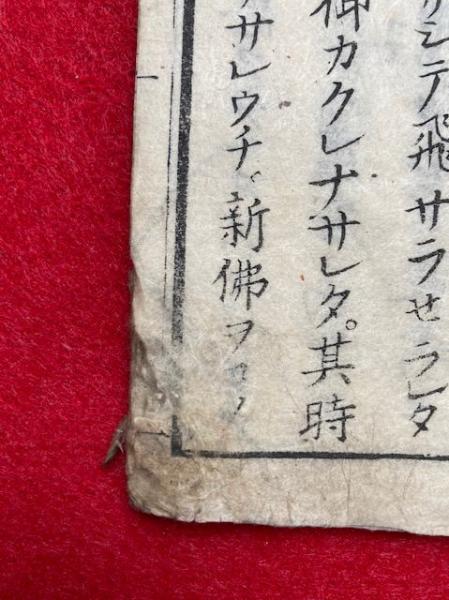 シテ飛サラセラレタ
御カクレナサレタ。其時
サレウチ、新佛ヲ